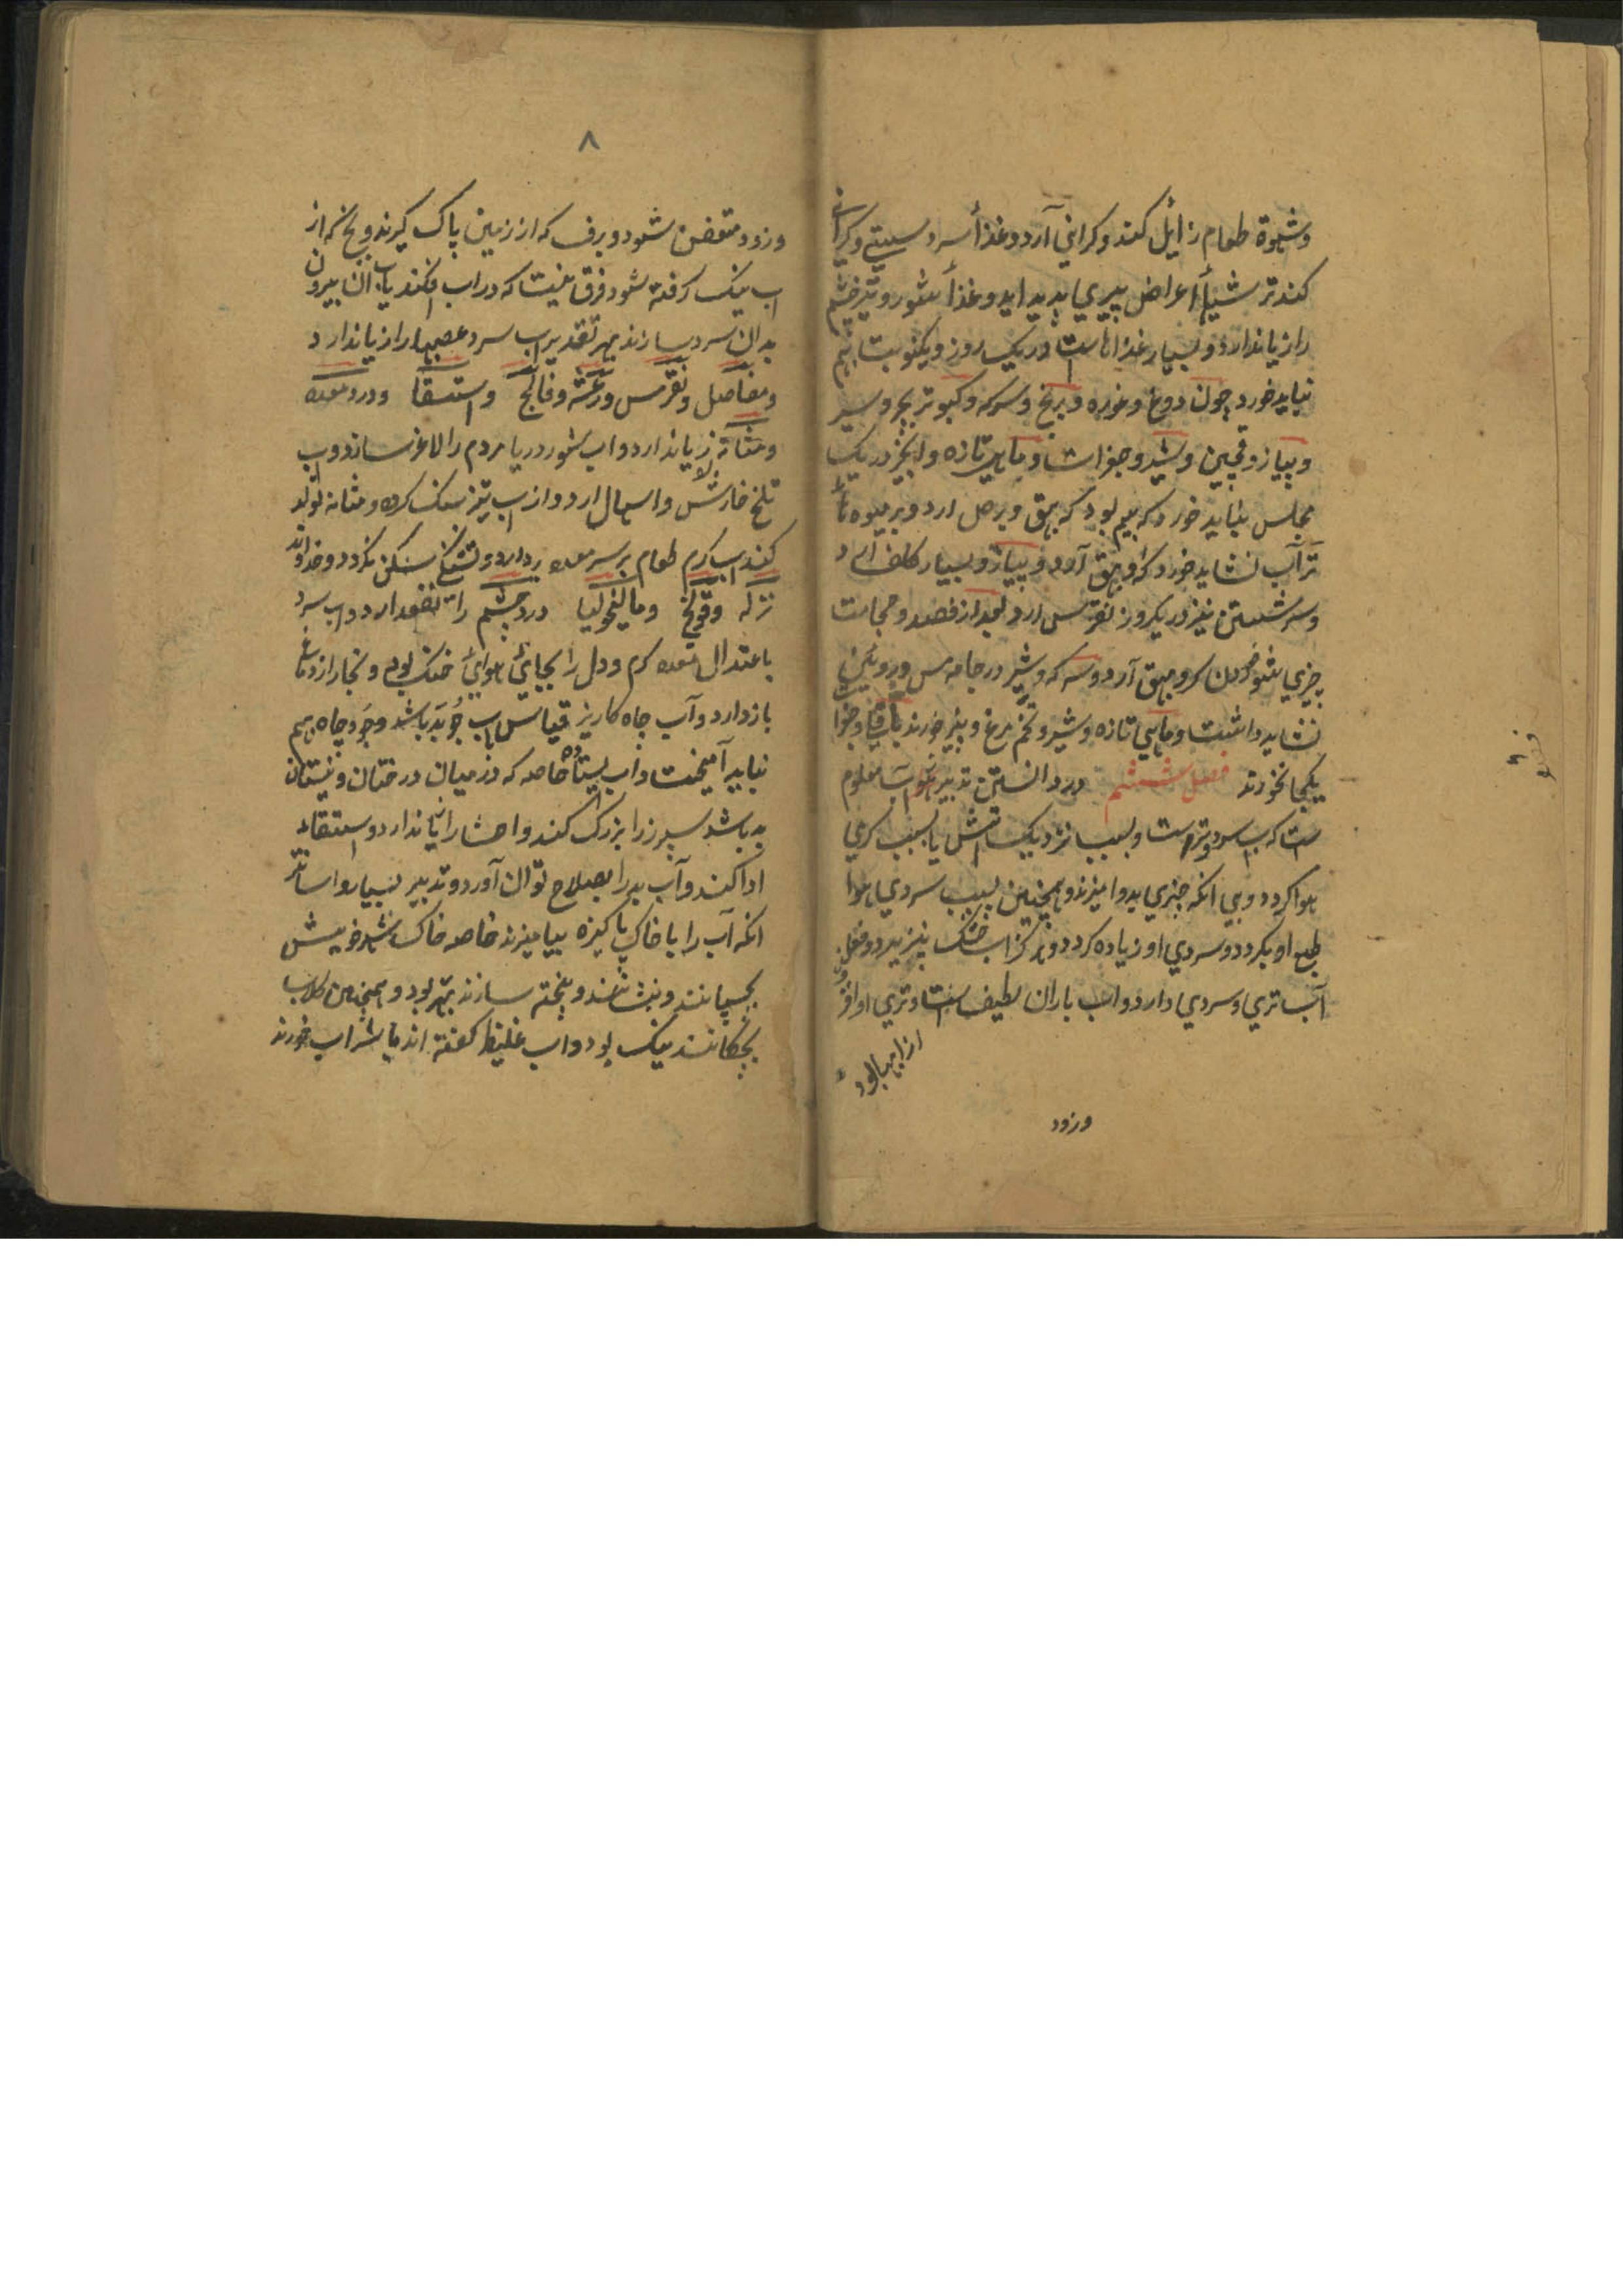 وشهوة طعام زایل کند و کرانی آرد و غذأ سرد سستی و کرانی
کند ترشیها اعراض پیری پدید اید و غذأ شور و تیز چشم
را زیاندارد و بسیار غذاهاست در یک روز و یکنوبت بهم
نباید خورد چون دوغ و غوره و برنج و سرکه و کبوتر بچه و سیر
و پیاز و و شیر و جغرات و ماهی تازه و انجیر در یک
مجلس نباید خورد که بیم بود که بهق و برص ارد و بر میوه تا
تر آب نشاید خورد که بهق آرد و پیاز و بسیار کلف ارد
و سر شستن نیز در یکروز نقرس ارد بعد از فصد و حجامت
چیزی شور خوردن کر و بهق آرد و سرکه و شیر در جامه مس و رویین
نشاید داشت و ماهی تازه و شیر و تخم مرغ و پنیر خورند باقلی و خرما
یکجا نخورند فصل ششم در دانستن تدبیر معلوم
ست که اب سرد و ترست و بسبب نزدیک اتش یا بسبب کرمی
هوا کردد و بی انکه چیزی بدو امیزند و همچنین بسبب سردی هوا
طبع او بکردد و سردی او زیاده کردد و هرکز اب خشک نپذیرد و فعل
آب تری و سردی دارد و اب باران لطیف است و تری او افزون
از ابها بود
وزود
فصل ٦
٨
وزود متعفن شود و برف که از زمین پاک کیرند و یخ که از
اب نیک کرفته شود فرق نیست که در اب افکند یا از بیرون
بدان سرد سازند بهر تقدیر اب سرد عصبها را زیاندارد
و مفاصل و نقرس و رعشه و فالج و استسقا و درد معده
و مثانه زیاندارد و اب شور دریا مردم را لاغر سازد و اب
تلخ خارش و اسهال ارد و از اب تیز سنک کرده و مثانه تولد
کند اب کرم طعام بر سر معده بردارد و تشنکی سکن نکردد و خداوند
نزله و قولنج و مالیخولیا درد چشم را نفعدارد و اب سرد
باعتدال معده کرم و دل را بجای هوای خنک بود و بخار از دماغ
بازدارد و آب چاه کاریز قیاس اب جو بد باشد و جو و چاه بهم
نباید آمیخت و اب یستاده خاصه که در میان درختان و نیستان
بد باشد سپرز را بزرک کند و احشا را زیاندارد و استسقا
ادا کند و آب بد را بصلاح توان آورد و تدبیر بسیار و اسانتر
انکه آب را با خاک پاکیزه بیامیزند خاصه خاک شهر خویش
بجنبانند و بنشانند و پخته سازند بهتر بود و همچنین کلاب
بچکانند نیک بود و اب غلیظ کفته اند با شراب خورند